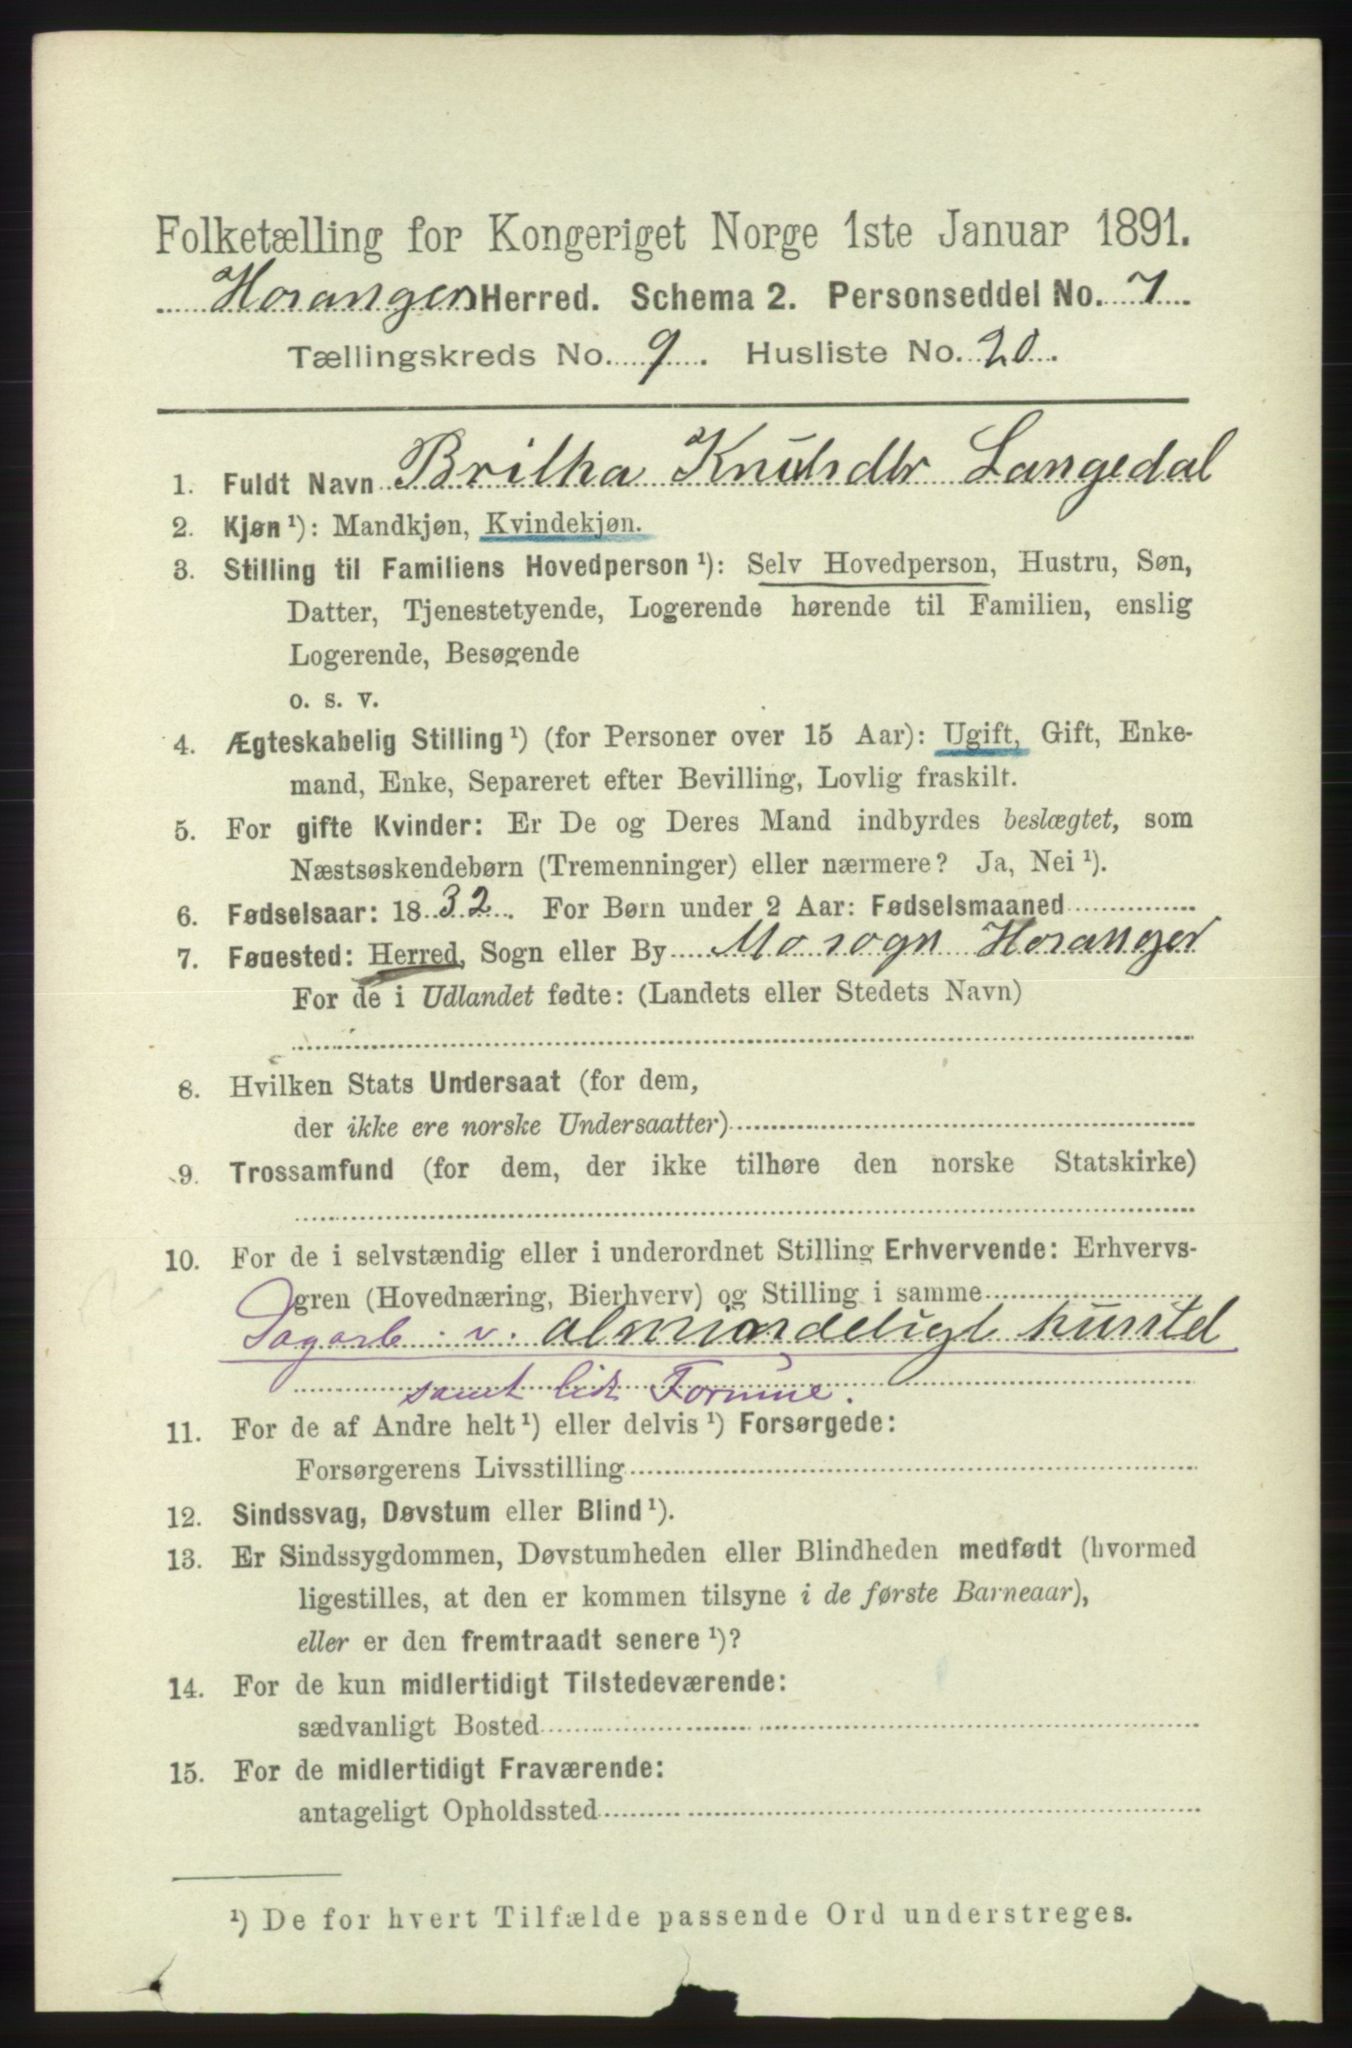 Folketælling for Kongeriget Norge 1ste Januar 1891.
Hosanger Herred. Schema 2. Personseddel No. 7
Tællingskreds No. 9. Husliste No. 20.
1. Fuldt Navn Britha Knutsdtr Langedal
2. Kjøn ¹): Mandkjøn, Kvindekjøn.
3. Stilling til Familiens Hovedperson ¹): Selv Hovedperson, Hustru, Søn,
Datter, Tjenestetyende, Logerende hørende til Familien, enslig
Logerende, Besøgende
o. s. v.
4. Ægteskabelig Stilling ¹) (for Personer over 15 Aar): Ugift, Gift, Enke-
mand, Enke, Separeret efter Bevilling, Lovlig fraskilt.
5. For gifte Kvinder: Er De og Deres Mand indbyrdes beslægtet, som
Næstsøskendebørn (Tremenninger) eller nærmere? Ja, Nei ¹).
6. Fødselsaar: 1832. For Børn under 2 Aar: Fødselsmaaned
7. Føuested: Herred, Sogn eller By Mo sogn Hosanger
For de i Udlandet fødte: (Landets eller Stedets Navn)
8. Hvilken Stats Undersaat (for dem,
der ikke ere norske Undersaatter)
9. Trossamfund (for dem, der ikke tilhøre den norske Statskirke)
10. For de i selvstændig eller i underordnet Stilling Erhvervende: Erhvervs-
gren (Hovednæring, Bierhverv) og Stilling i samme
Dagarb. v. almindeligt husstel
samt lidt Formue.
11. For de af Andre helt ¹) eller delvis ¹) Forsørgede:
Forsørgerens Livsstilling
12. Sindssvag, Døvstum eller Blind ¹).
13. Er Sindssygdommen, Døvstumheden eller Blindheden medfødt (hvormed
ligestilles, at den er kommen tilsyne i de første Barneaar),
eller er den fremtraadt senere ¹)?
14. For de kun midlertidigt Tilstedeværende:
sædvanligt Bosted
15. For de midlertidigt Fraværende:
antageligt Opholdssted
¹) De for hvert Tilfælde passende Ord understreges.